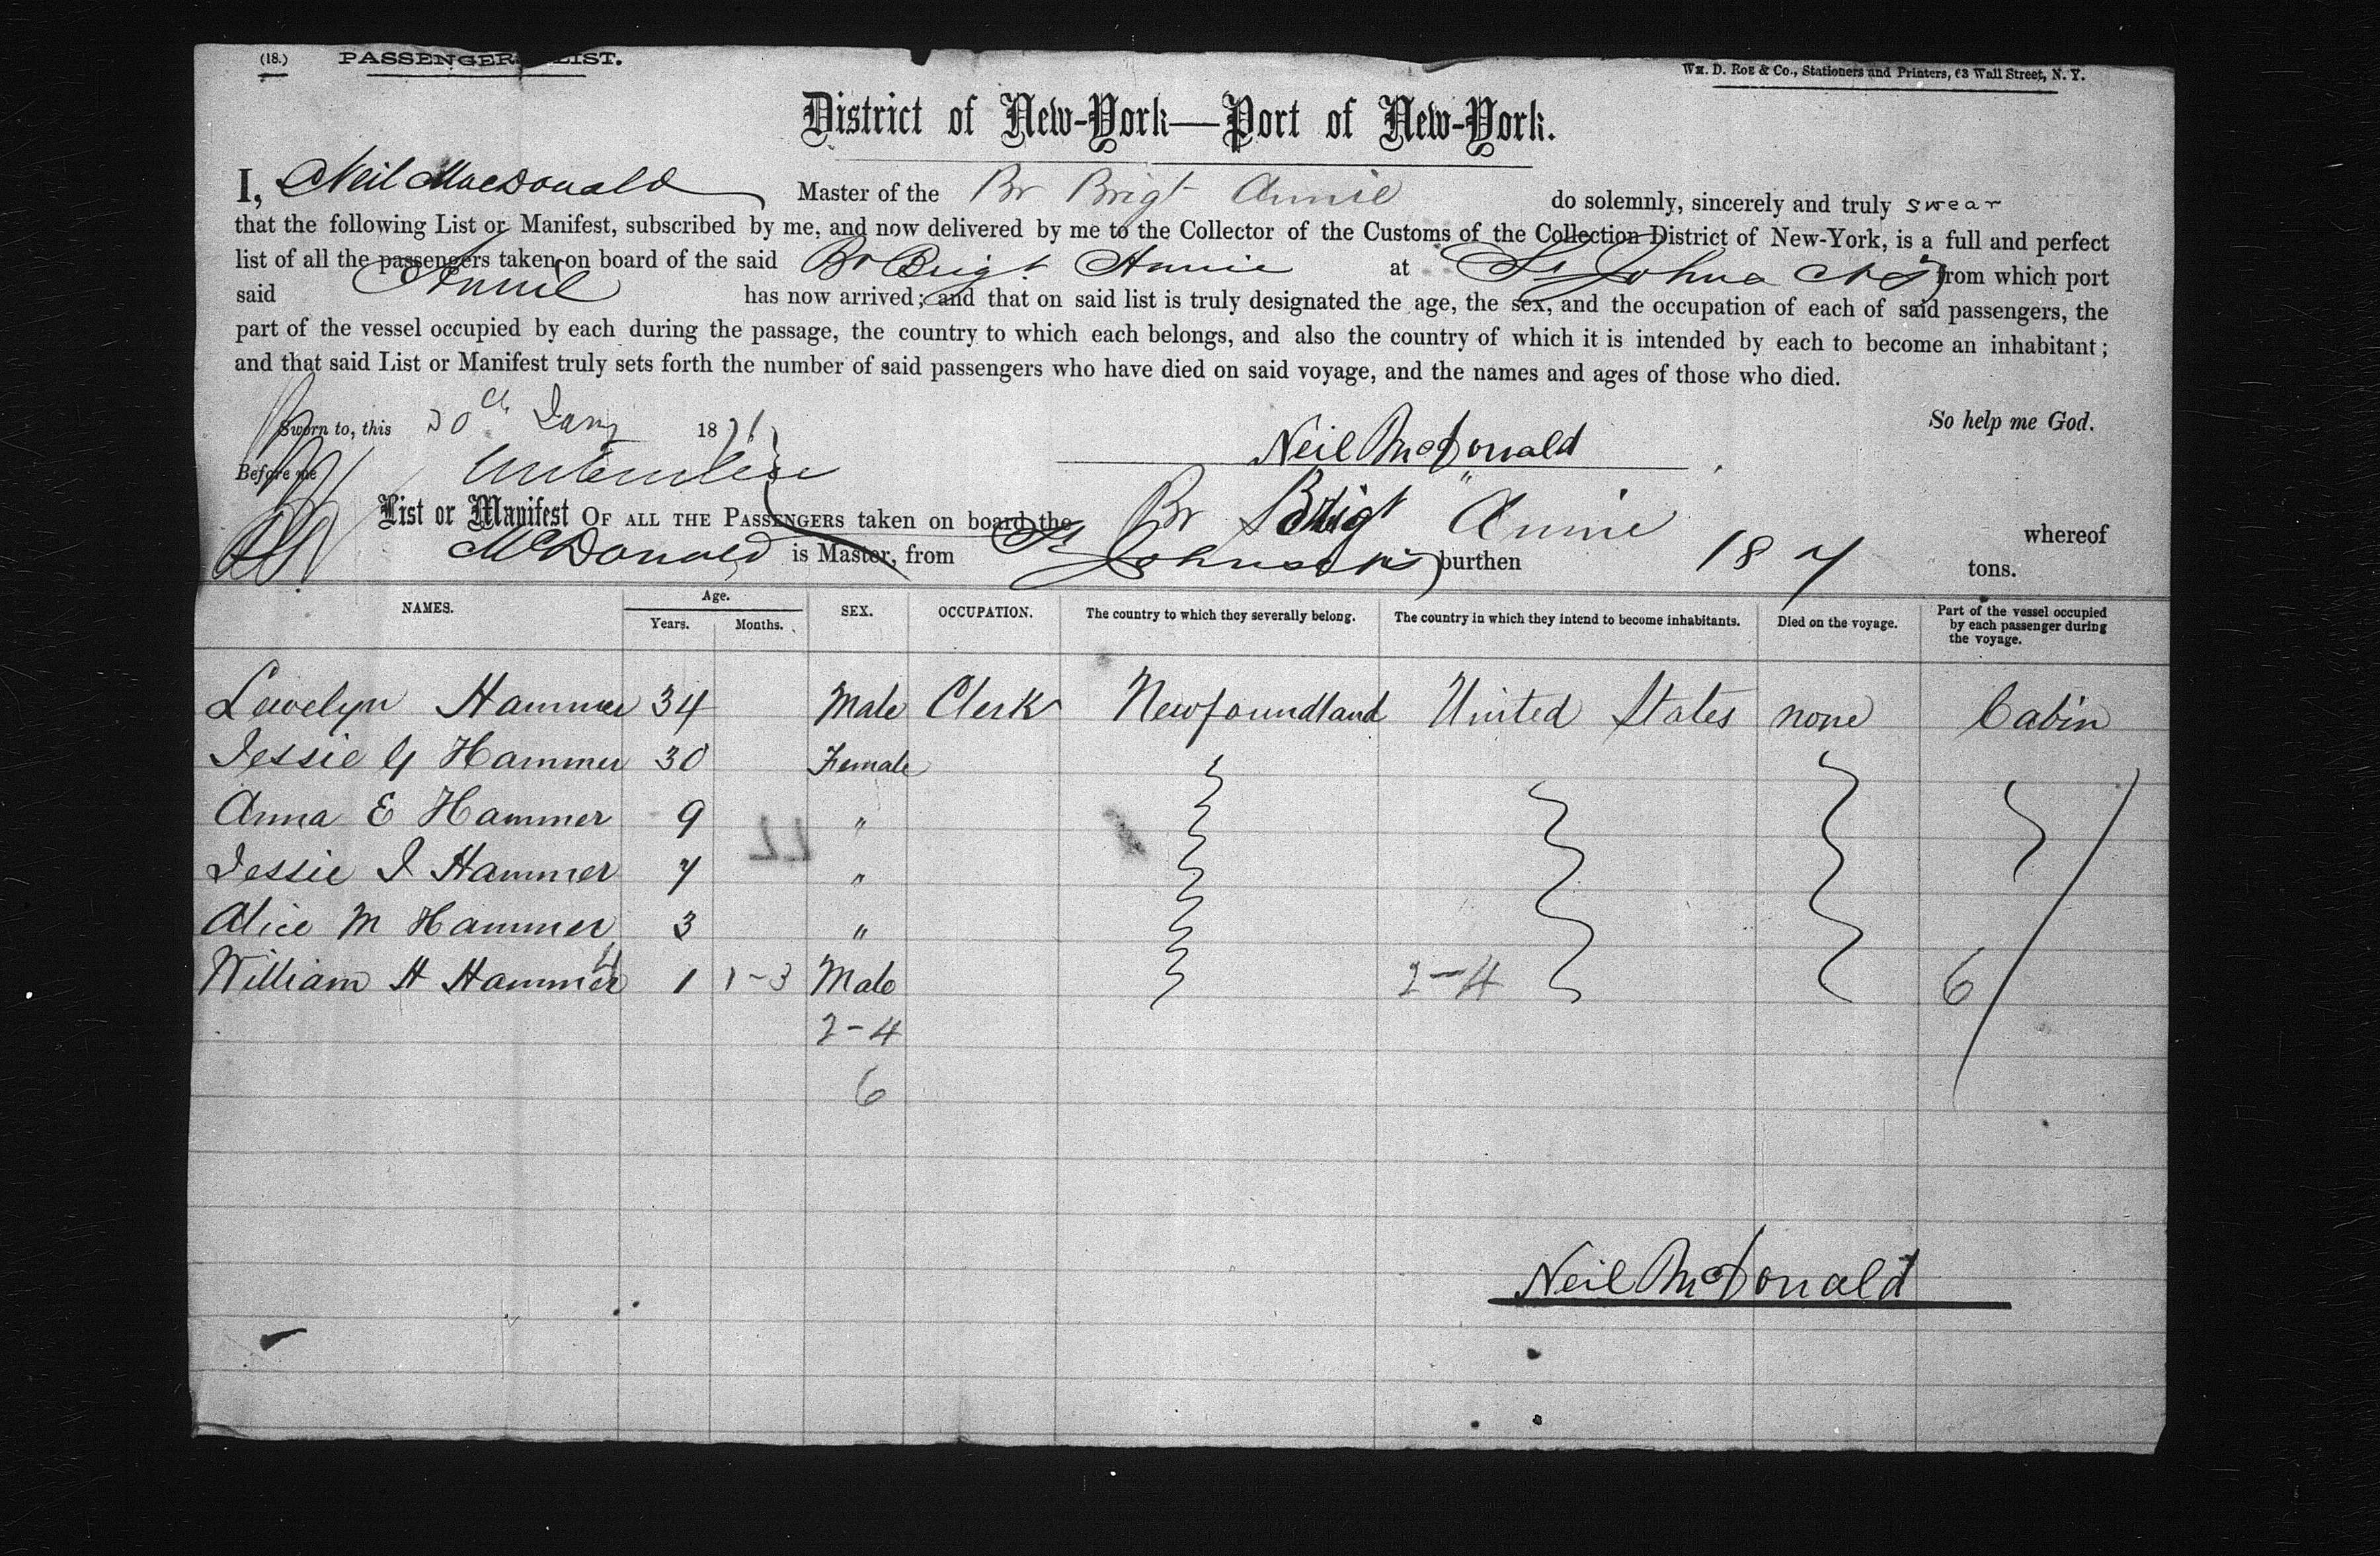 (18.) PASSENGER LIST.
Wm. D. Roe & Co., Stationers and Printers, 63 Wall Street, N. Y.
District of New-York—Port of New-York.
I, Neil MacDonald Master of the Br Brigt Annie do solemnly, sincerely and truly swear
that the following List or Manifest, subscribed by me, and now delivered by me to the Collector of the Customs of the Collection District of New-York, is a full and perfect
list of all the passengers taken on board of the said Br Brigt Annie at St Johns from which port
said Annie has now arrived; and that on said list is truly designated the age, the sex, and the occupation of each of said passengers, the
part of the vessel occupied by each during the passage, the country to which each belongs, and also the country of which it is intended by each to become an inhabitant;
and that said List or Manifest truly sets forth the number of said passengers who have died on said voyage, and the names and ages of those who died.
So help me God.
Sworn to, this 30th Jany 1871
Neil McDonald
Before me
List or Manifest OF ALL THE PASSENGERS taken on board the Br Brigt "Annie whereof
McDonald is Master, from St Johns burthen 187 tons.
NAMES. Age. Years. Months. SEX. OCCUPATION. The country to which they severally belong. The country in which they intend to become inhabitants. Died on the voyage. Part of the vessel occupied by each passenger during the voyage.
Lewelyn Hammer 34 Male Clerk Newfoundland United States none Cabin
Jessie G Hammer 30 Female
Anna E Hammer 9 "
Jessie I Hammer 7 "
Alice M Hammer 3 "
William H Hammer 1 1-3 Male 2-4 6
2-4
6
Neil McDonald